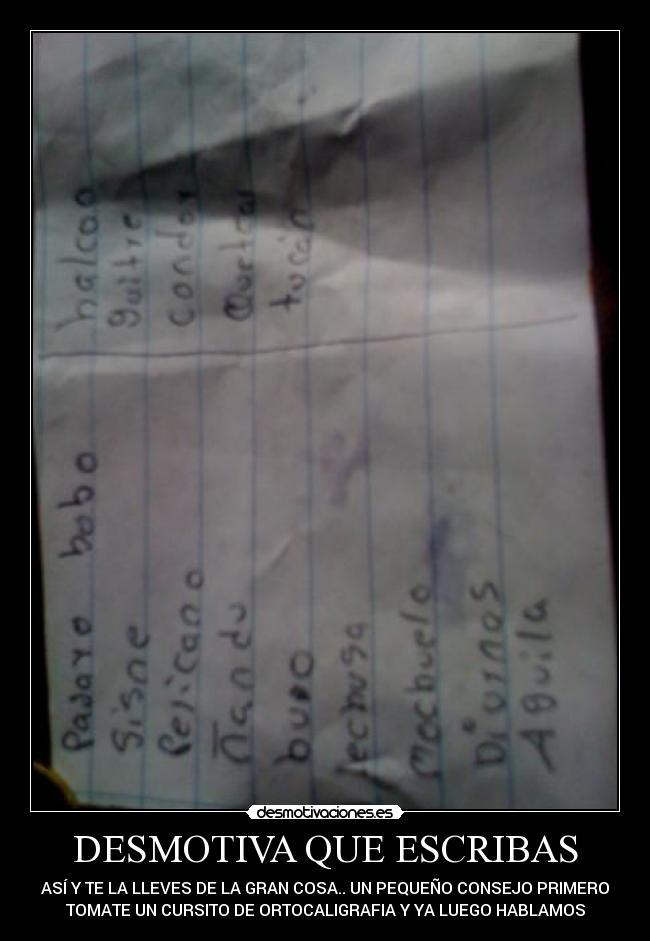 Pajaro bobo
Sisne
Pelicano
Ñandu
buho
lechusa
Mochuelo
Diurnos
Aguila
halcon
guitre
condor
Quetzal
tucán
desmotivaciones.es
DESMOTIVA QUE ESCRIBAS
ASÍ Y TE LA LLEVES DE LA GRAN COSA.. UN PEQUEÑO CONSEJO PRIMERO
TOMATE UN CURSITO DE ORTOCALIGRAFIA Y YA LUEGO HABLAMOS